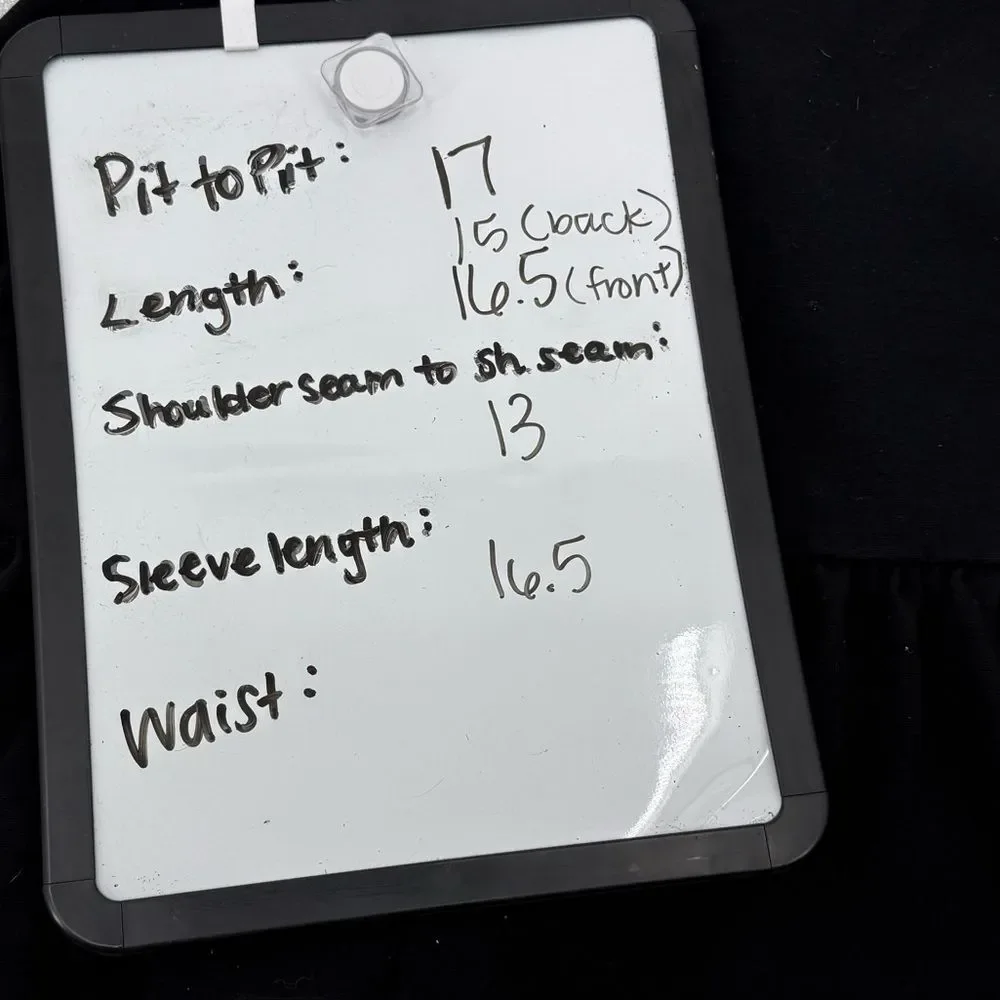 Pit to Pit: 17
15 (back)
Length: 16.5 (front)
Shoulder seam to sh. seam:
13
Sleeve length: 16.5
Waist: